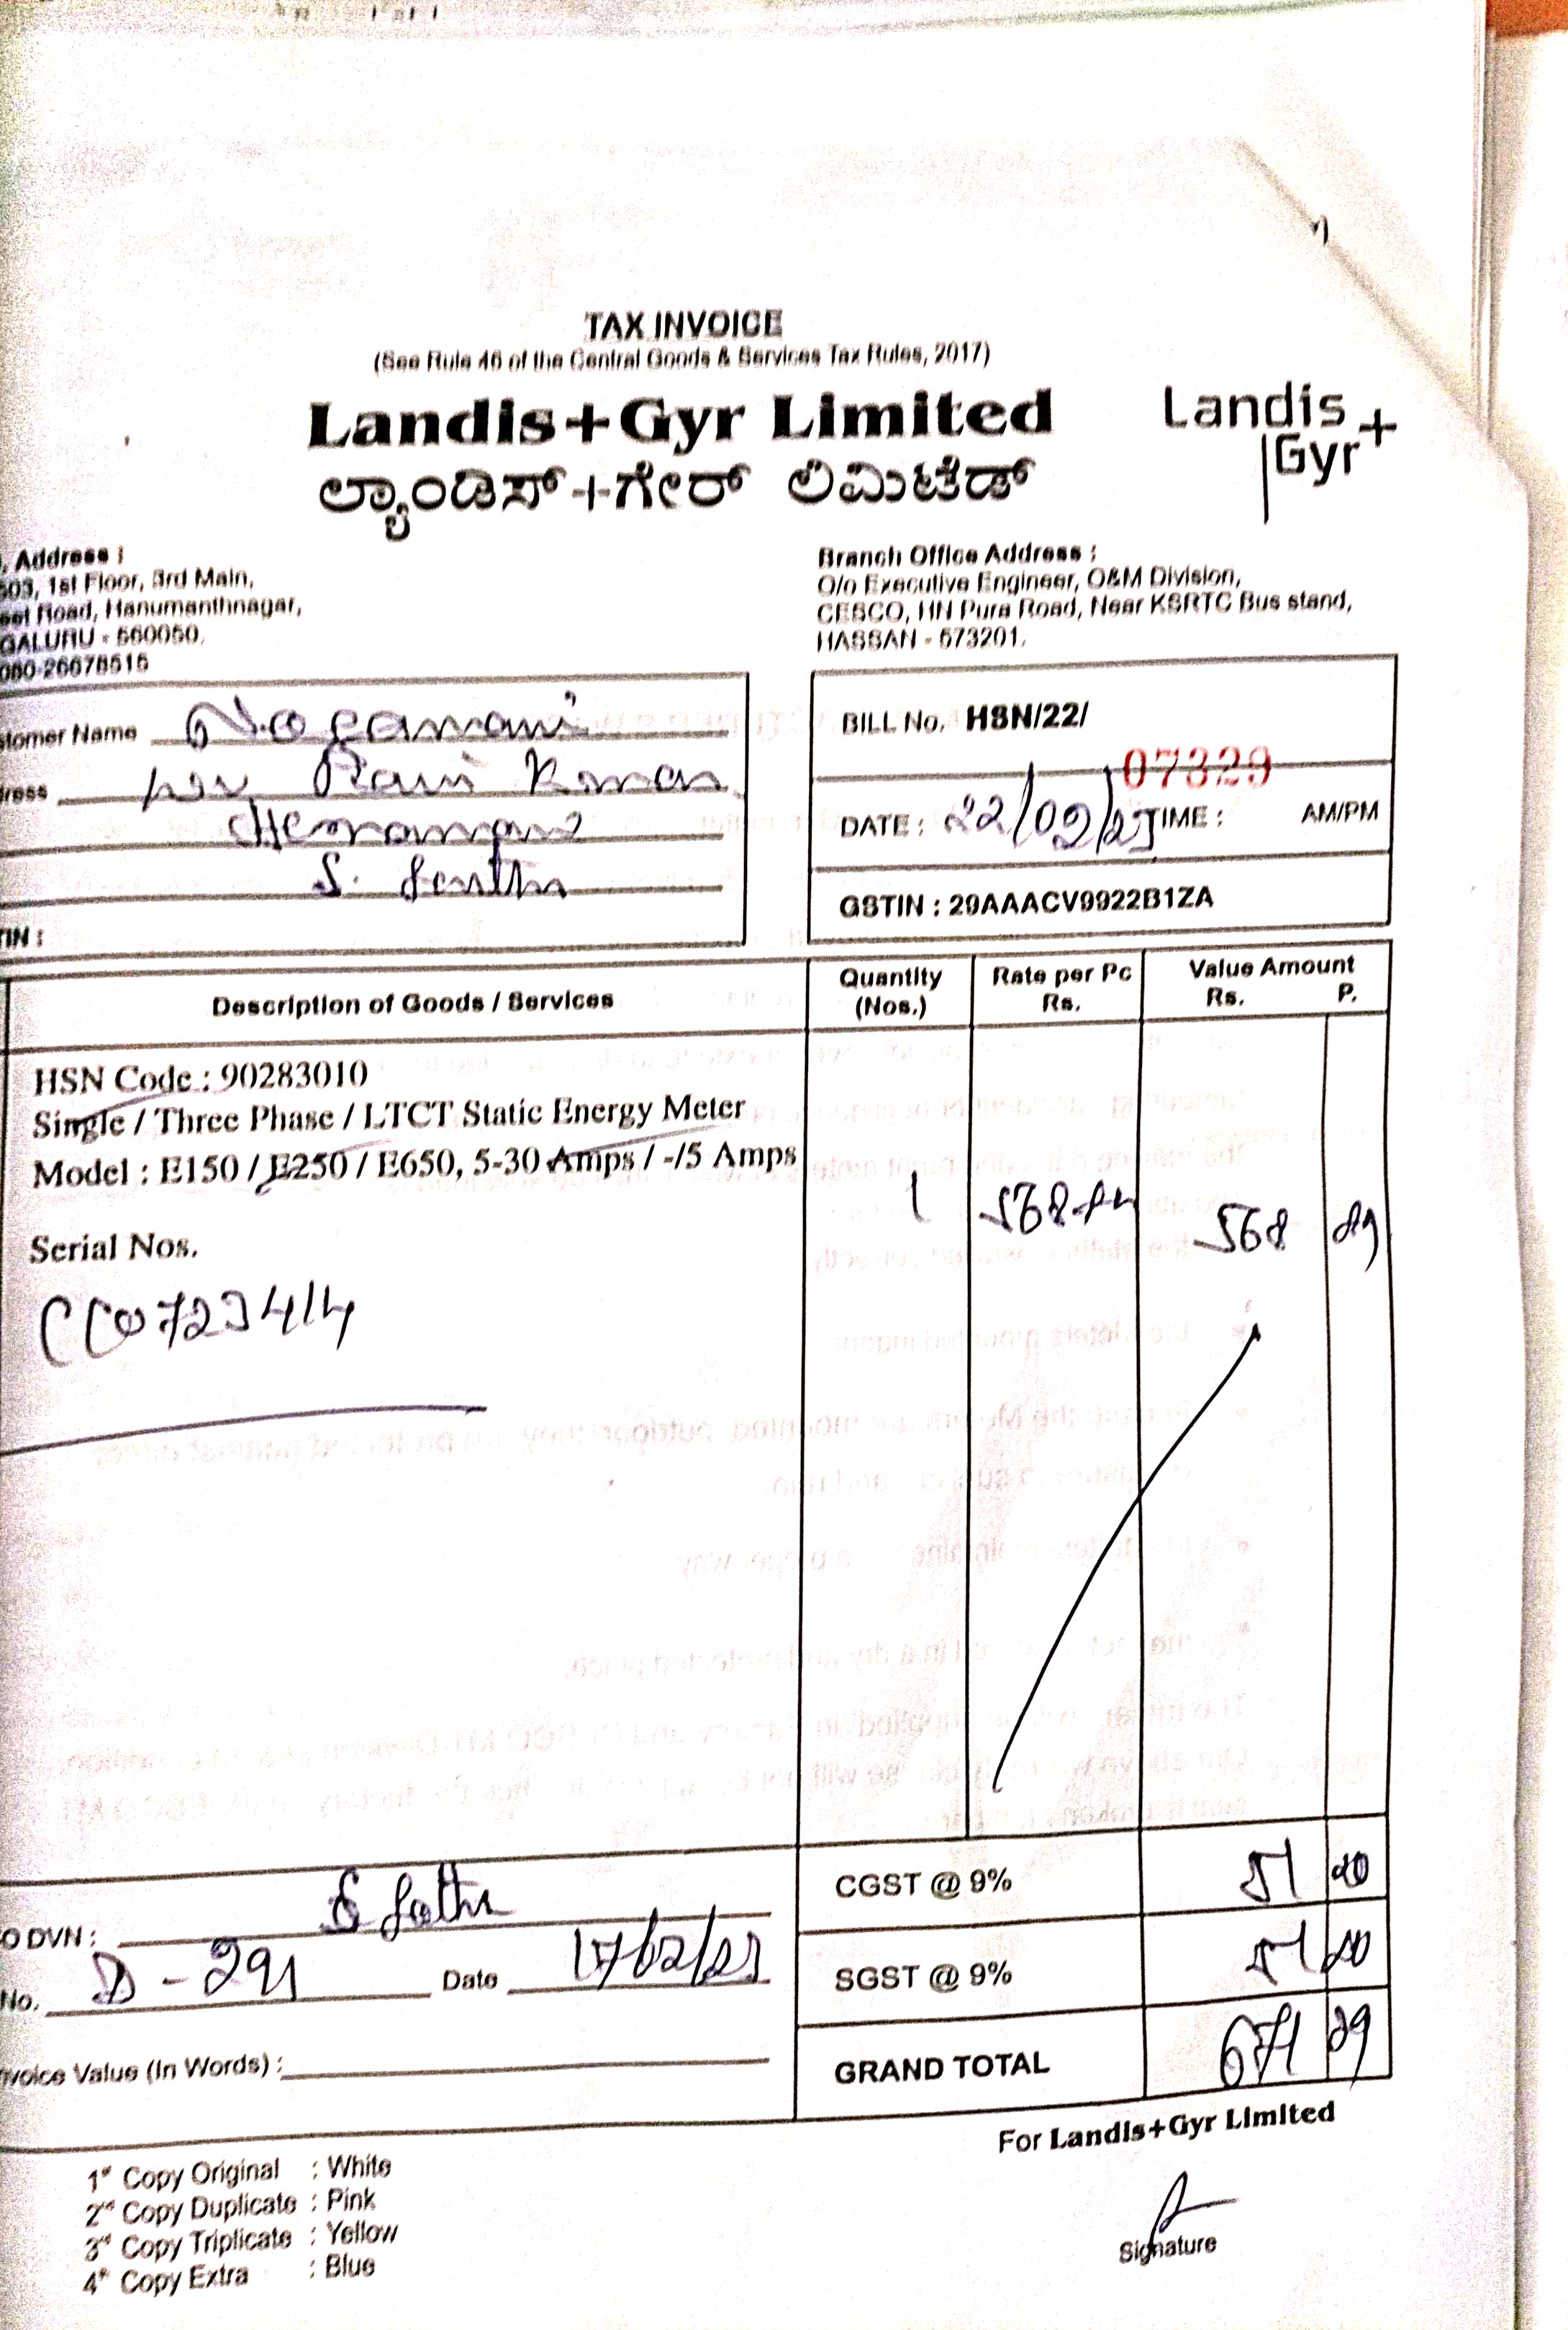 TAX INVOICE
(See Rule 46 of the Central Goods & Services Tax Rules, 2017)
Landis+Gyr Limited
ಲ್ಯಾಂಡಿಸ್+ಗೇರ್ ಲಿಮಿಟೆಡ್
Landis
Gyr+
Address :
503, 1st Floor, 3rd Main,
Road, Hanumanthnagar,
GALURU - 560050.
080-26678515
Branch Office Address :
O/o Executive Engineer, O&M Division,
CESCO, HN Pura Road, Near KSRTC Bus stand,
HASSAN - 573201.
tomer Name
ress
Ravi
TIN :
BILL No. HSN/22/
07329
DATE : 22/02/23 TIME : AM/PM
GSTIN : 29AAACV9922B1ZA
Description of Goods / Services
Quantity (Nos.)
Rate per Pc Rs.
Value Amount Rs. P.
HSN Code : 90283010
Single / Three Phase / LTCT Static Energy Meter
Model : E150 / E250 / E650, 5-30 Amps / -/5 Amps
1 568 89
Serial Nos.
CC0723414
CGST @ 9% 51 20
O DVN :
No. D - 291 Date 17/02/23
SGST @ 9% 51 20
GRAND TOTAL 671 29
nvoice Value (In Words) :
For Landis+Gyr Limited
1st Copy Original : White
2nd Copy Duplicate : Pink
3rd Copy Triplicate : Yellow
4th Copy Extra : Blue
Signature